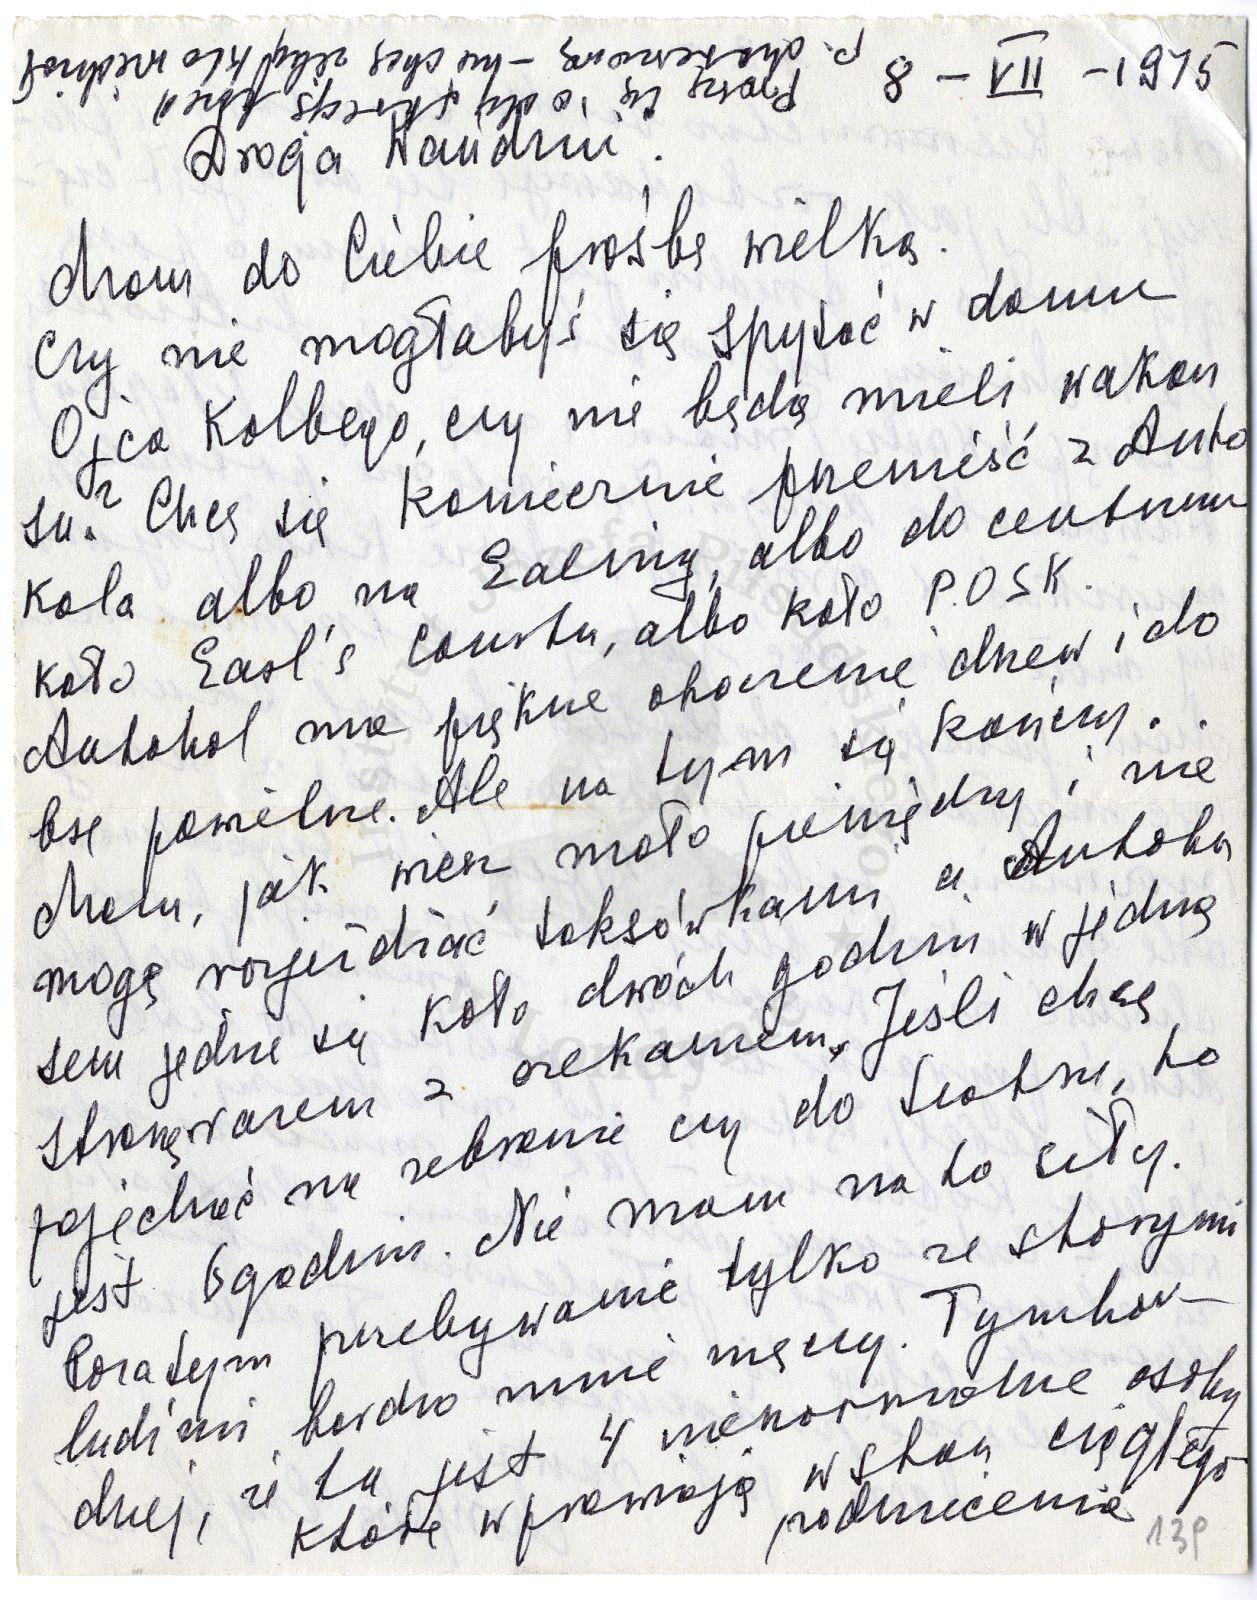 8 – VII – 1975
Proszę Cię o dyskrecję przed
p. – nie chcę żeby kto wiedział
Droga Wandziu.
Mam do Ciebie prośbę wielką.
Czy nie mogłabyś się spytać w domu
Ojca Kolbego, czy nie będą mieli wakan
su? Chcę się koniecznie przenieść z Anto
kola albo na Ealing, albo do centrum
koło Earl's Courtu, albo koło P.O.S.K.
Antokol ma piękne otoczenie drzew i do
bre powietrze. Ale na tym się kończy.
Mam, jak wiesz mało pieniędzy i nie
mogę rozjeżdżać taksówkami a Autobu
sem jedzie się koło dwóch godzin w jedną
stronę razem z czekaniem. Jeśli chcę
pojechać na zebranie czy do teatru, to
jest 6 godzin. Nie mam na to siły.
Pozatym przebywanie tylko ze starymi
ludźmi bardzo mnie męczy. Tymbar
dziej, że tu jest 4 nienormalne osoby
które wprawiają w stan ciągłego
podniecenia
139
Instytut Józefa Piłsudskiego
w Londynie